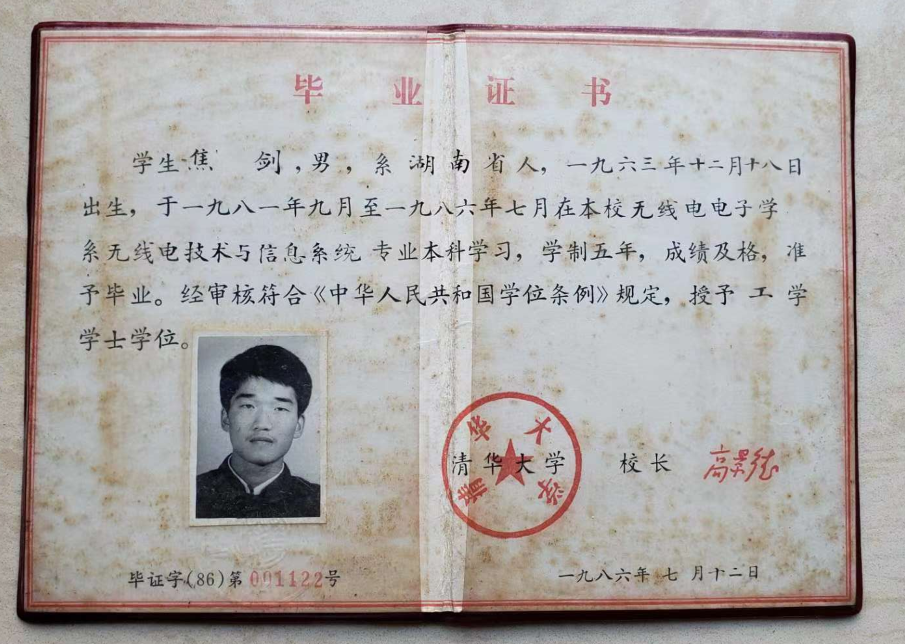 毕业证书
学生焦 剑,男,系湖南省人,一九六三年十二月十八日
出生,于一九八一年九月至一九八六年七月在本校无线电电子学
系无线电技术与信息系统 专业本科学习,学制五年,成绩及格,准
予毕业。经审核符合《中华人民共和国学位条例》规定,授予 工 学
学士学位。
清华大学
清华大学 校长 高景德
毕证字(86)第001122号
一九八六年 七 月十二日